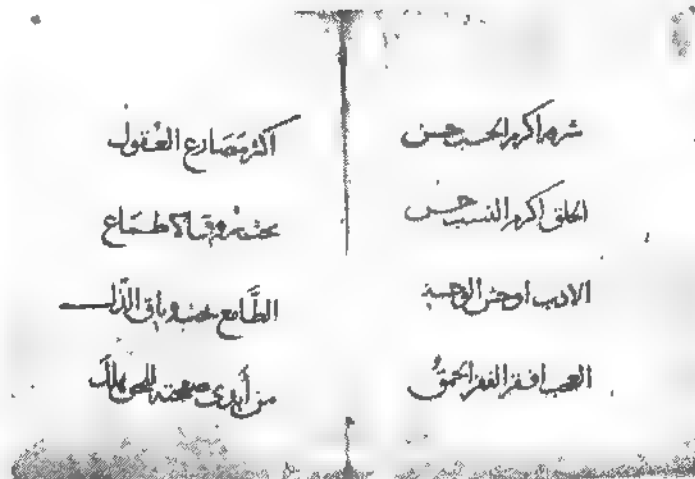 اكرم الحسب حسن
الخلق اكرم النسب حسن
الادب اوحش الوحشة
العجب افقر الفقر الحمقُ
اكثر مصارع العقول
تحت بروق الاطماع
الطَّامع وثاق الذّل
من أبدى صفحته للحق هلك